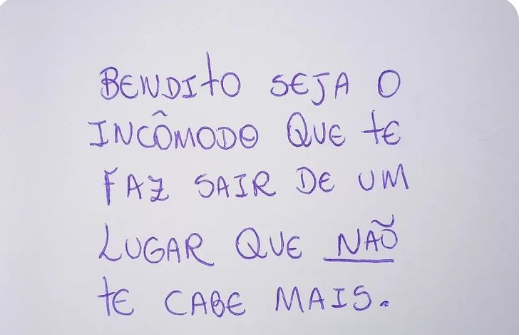 BENDITO SEJA O
INCÔMODO QUE TE
FAZ SAIR DE UM
LUGAR QUE NÃO
TE CABE MAIS.